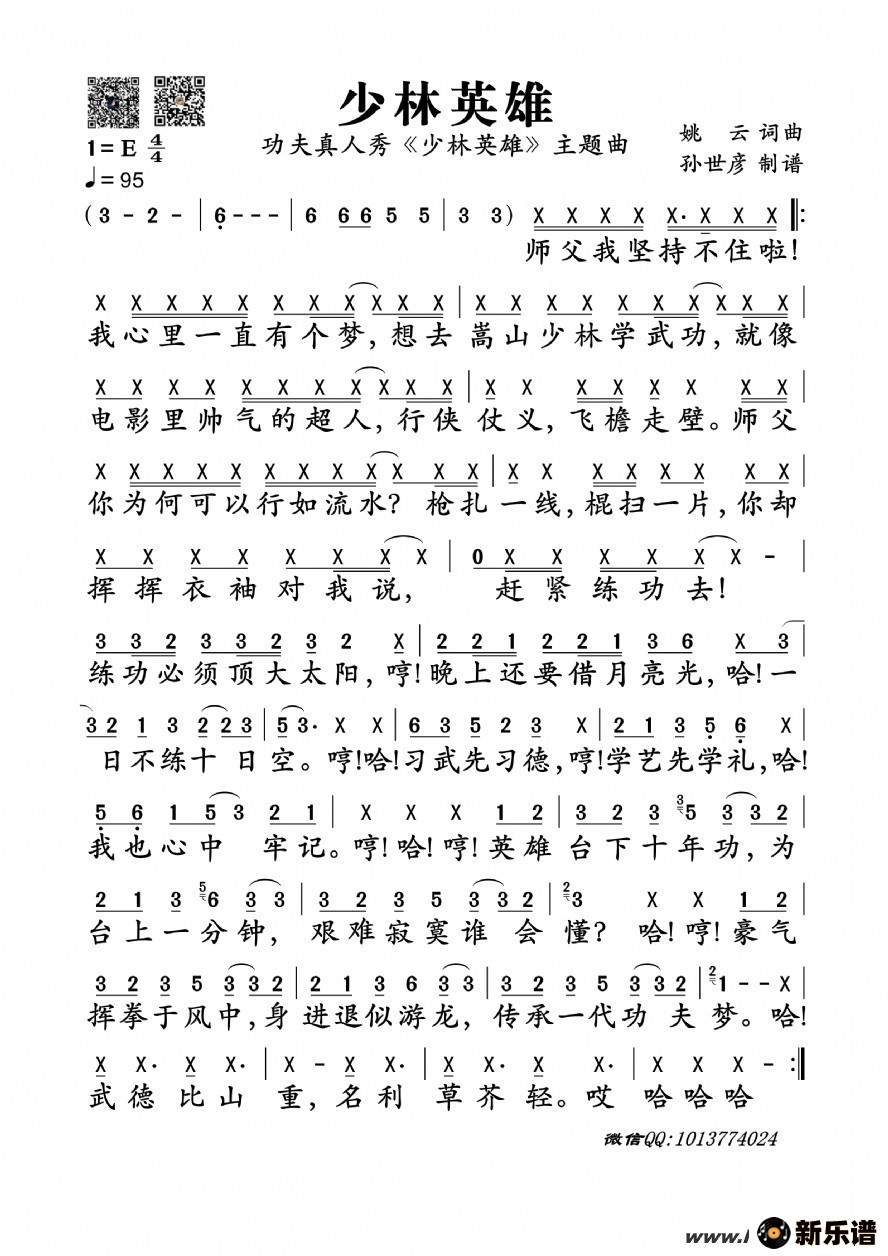 少林英雄
功夫真人秀《少林英雄》主题曲
姚 云 词曲
孙世彦 制谱
1=E 4/4
♩=95
(3 - 2 - | 6 - - - | 6 6 6 5 5 | 3 3) X X X X X· X X X ‖:
师父我坚持不住啦!
X X X X X X X X X X X | X X X X X X X X X X
我心里一直有个梦,想去嵩山少林学武功,就像
X X X X X X X X X X X | X X X X X X X X
电影里帅气的超人,行侠仗义,飞檐走壁。师父
X X X X X X X X X X X | X X X X X X X X
你为何可以行如流水?枪扎一线,棍扫一片,你却
X X X X X X X X | 0 X X X X X X - |
挥挥衣袖对我说,赶紧练功去!
3 3 2 3 3 2 3 2 X | 2 2 1 2 2 1 3 6 X 3
练功必须顶大太阳,哼!晚上还要借月亮光,哈!一
3 2 1 3 2 2 2 3 | 5 3· X X | 6 3 5 2 3 X | 2 1 3 5 6 X |
日不练十日空。哼!哈!习武先习德,哼!学艺先学礼,哈!
5 6 1 5 3 2 1 | X X X 1 2 | 3 2 3 3 5 3 3 2
我也心中 牢记。哼!哈!哼!英雄台下十年功,为
2 1 3 5 6 3 3 | 3 2 3 5 3 3 2 | 2 3 X X 1 2
台上一分钟,艰难寂寞谁会懂?哈!哼!豪气
3 2 3 5 3 3 2 | 2 1 3 6 3 3 | 3 2 3 5 3 3 2 | 2 1 - - X |
挥拳于风中,身进退似游龙,传承一代功夫梦。哈!
X X· X X· | X - X X· | X X· X X· | X X X - :‖
武德比山重,名利草芥轻。哎哈哈哈
微信QQ:1013774024
www.
新乐谱